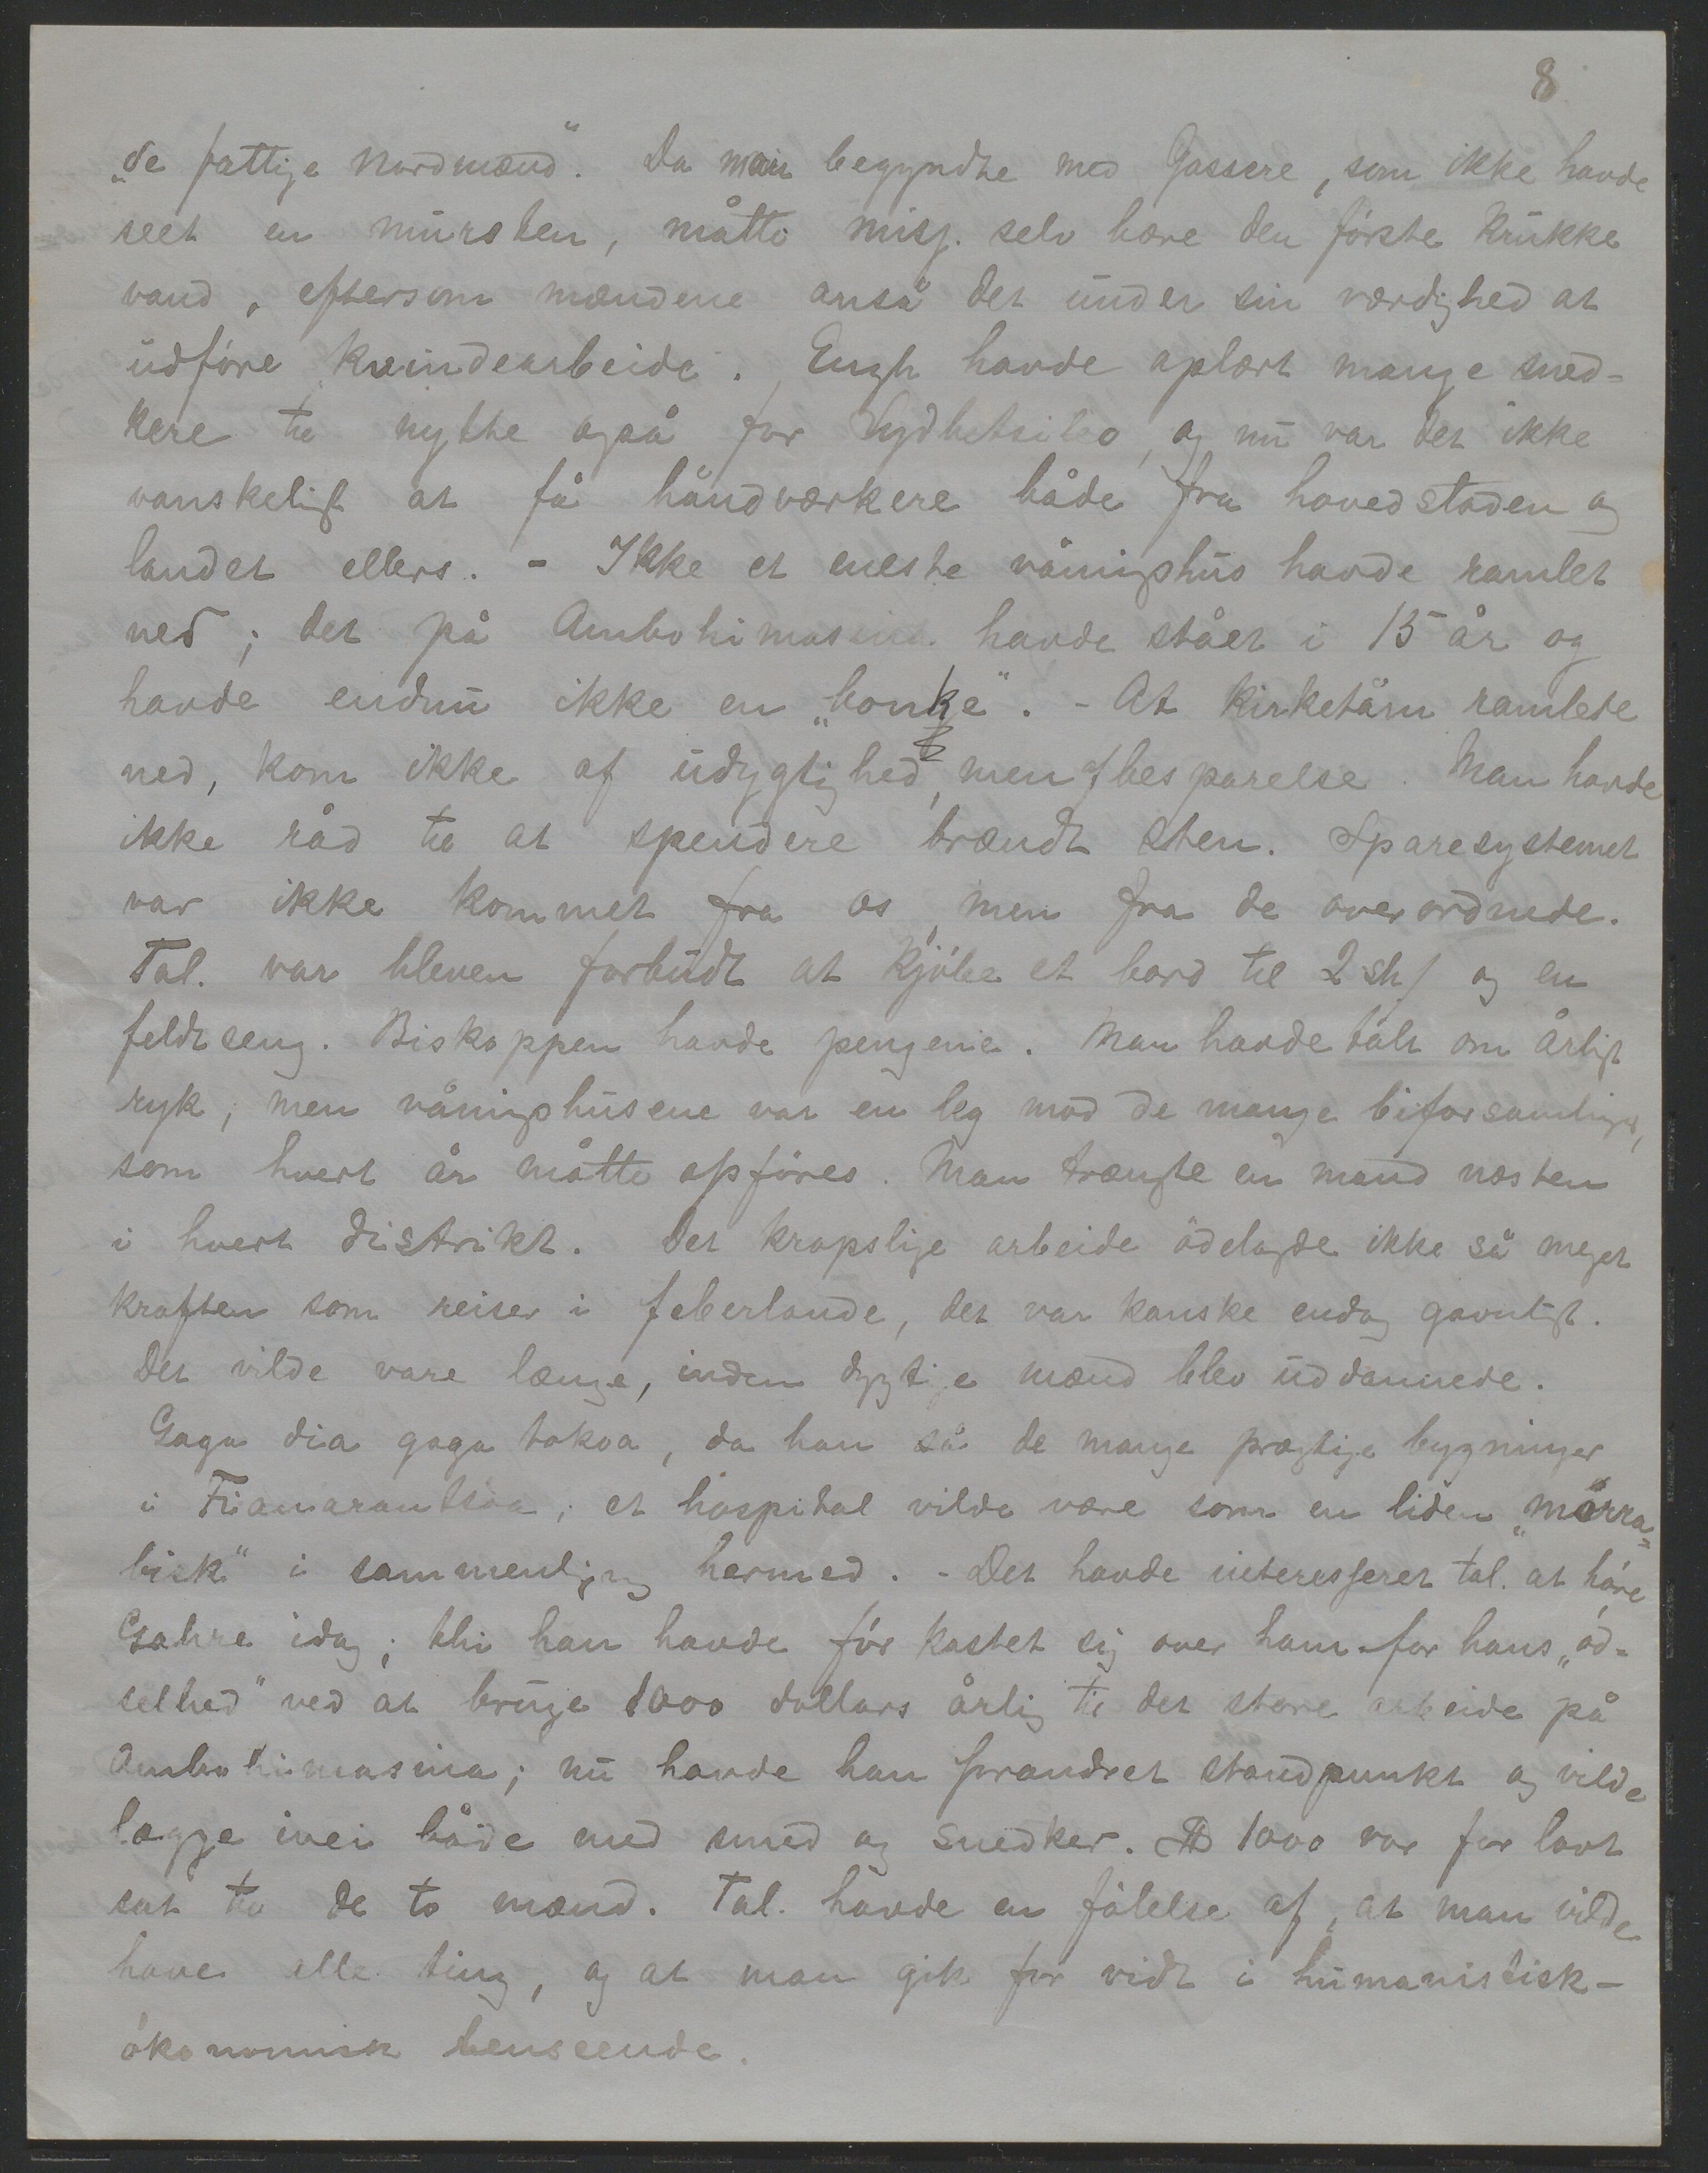 8
„de fattige Nordmænd". Da man begyndte med Gassere, som ikke havde
seet en mursten, måtte misj. selv bære den første krukke
vand, eftersom mændene anså det under sin værdighed at
udføre kvindearbeide. Engh havde oplært mange sned-
kere til nytte også for Sydbetsileo, og nu var det ikke
vanskeligt at få håndværkere både fra hovedstaden og
landet ellers. - Ikke et eneste våningshus havde ramlet
ned; det på Ambohimasina havde stået i 15 år og
havde endnu ikke en „bonke". - At kirketårn ramlede
ned, kom ikke af udygtighed, men af besparelse. Man havde
ikke råd til at spendere brændt sten. Sparesystemet
var ikke kommet fra os, men fra de overordnede.
Tal. var bleven forbudt at kjøbe et bord til 2 sh/ og en
feldtseng. Biskoppen havde pengene. Man havde talt om årligt
ryk, men våningshusene var en leg mod de mange biforsamlinger,
som hvert år måtte opføres. Man trængte en mand næsten
i hvert distrikt. Det kropslige arbeide ødelagde ikke så meget
kraften som reiser i feberlande, det var kanske endog gavnligt.
Det vilde vare længe, inden dygtige mænd blev uddannede.
Gaga dia gaga tokoa, da han så de mange prægtige bygninger
i Fianarantsoa; et hospital vilde være som en liden „mörra-
bisk" i sammenligning hermed. - Det havde interesseret tal. at høre
Gahre idag; thi han havde før kastet sig over ham for hans „ød-
selhed" ved at bruge 1000 dollars årlig til det store arbeide på
Ambohimasina; nu havde han forandret standpunkt og vilde
lægge ivei både med smed og snedker. 1000 var for lavt
sat til de to mænd. Tal. havde en følelse af, at man vilde
have alle ting, og at man gik for vidt i humanistisk-
økonomisk henseende.